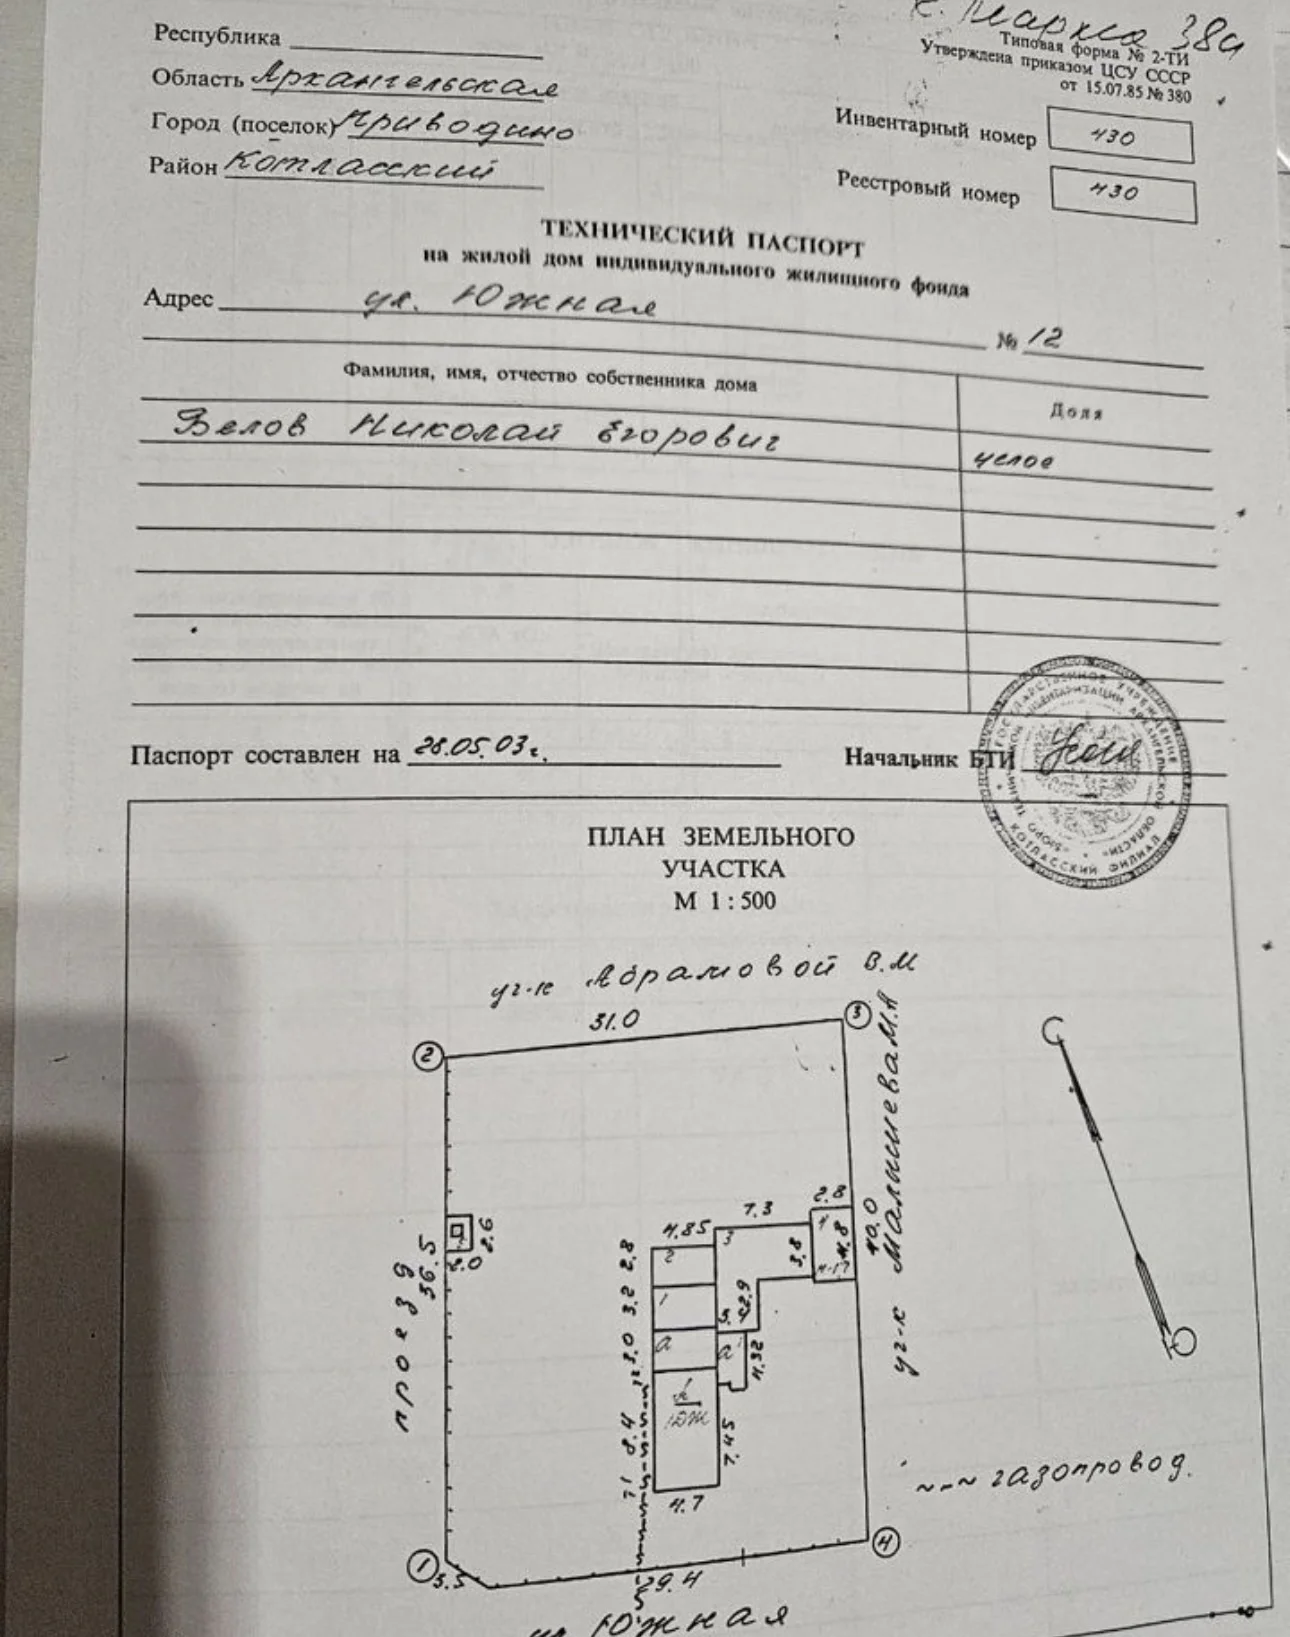 К. Маркса 38а
Типовая форма № 2-ТИ
Утверждена приказом ЦСУ СССР
от 15.07.85 № 380
Республика
Область Архангельская
Город (поселок) Приводино
Район Котласский
Инвентарный номер 430
Реестровый номер 430
ТЕХНИЧЕСКИЙ ПАСПОРТ
на жилой дом индивидуального жилищного фонда
Адрес ул. Южная № 12
Фамилия, имя, отчество собственника дома
Доля
Белов Николай Егорович
целое
Паспорт составлен на 28.05.03г.
Начальник БТИ
ГОСУДАРСТВЕННОЕ УЧРЕЖДЕНИЕ
БЮРО ТЕХНИЧЕСКОЙ ИНВЕНТАРИЗАЦИИ АРХАНГЕЛЬСКОЙ ОБЛАСТИ
КОТЛАССКИЙ ФИЛИАЛ
ПЛАН ЗЕМЕЛЬНОГО
УЧАСТКА
М 1 : 500
уч-к Абрамовой В.М
31.0
2
3
проезд
36.5
2.6
2.0
4.85
7.3
2.8
2
3
4
2.8
3.8
4.8
40.0
уч-к Малышева М.А
1
3.2
2.9
а
3.0
а
4.32
А
1ЭЖ
8.4
7.45
4.7
газопровод.
1
4
3.5
29.4
ул Южная